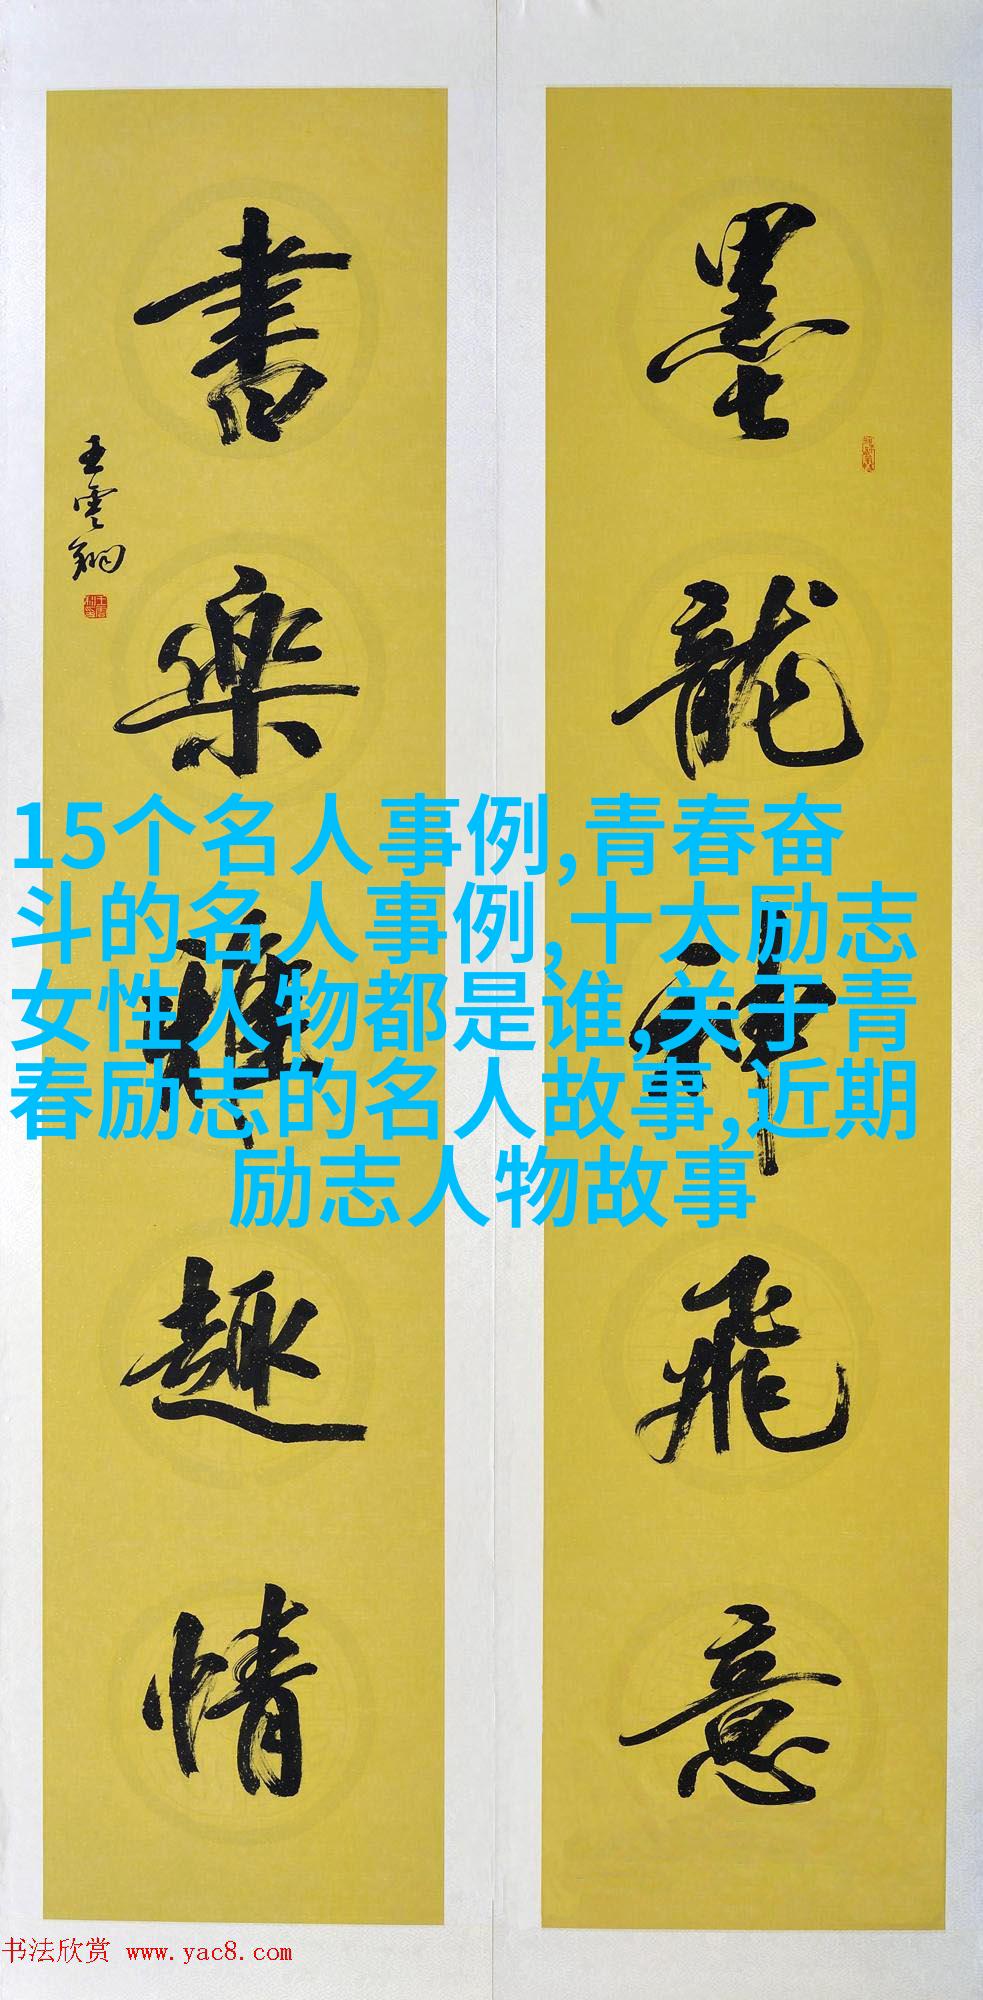 墨龍神飛意
書樂雅趣情
王雲翔
15个名人事例,青春奋
斗的名人事例,十大励志
女性人物都是谁,关于青
春励志的名人故事,近期
励志人物故事
书法欣赏 www.yac8.com